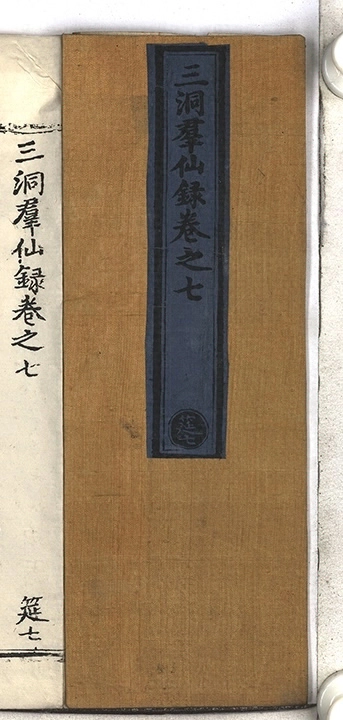 三洞羣仙録卷之七
筵七
三洞羣仙録卷之七
筵七